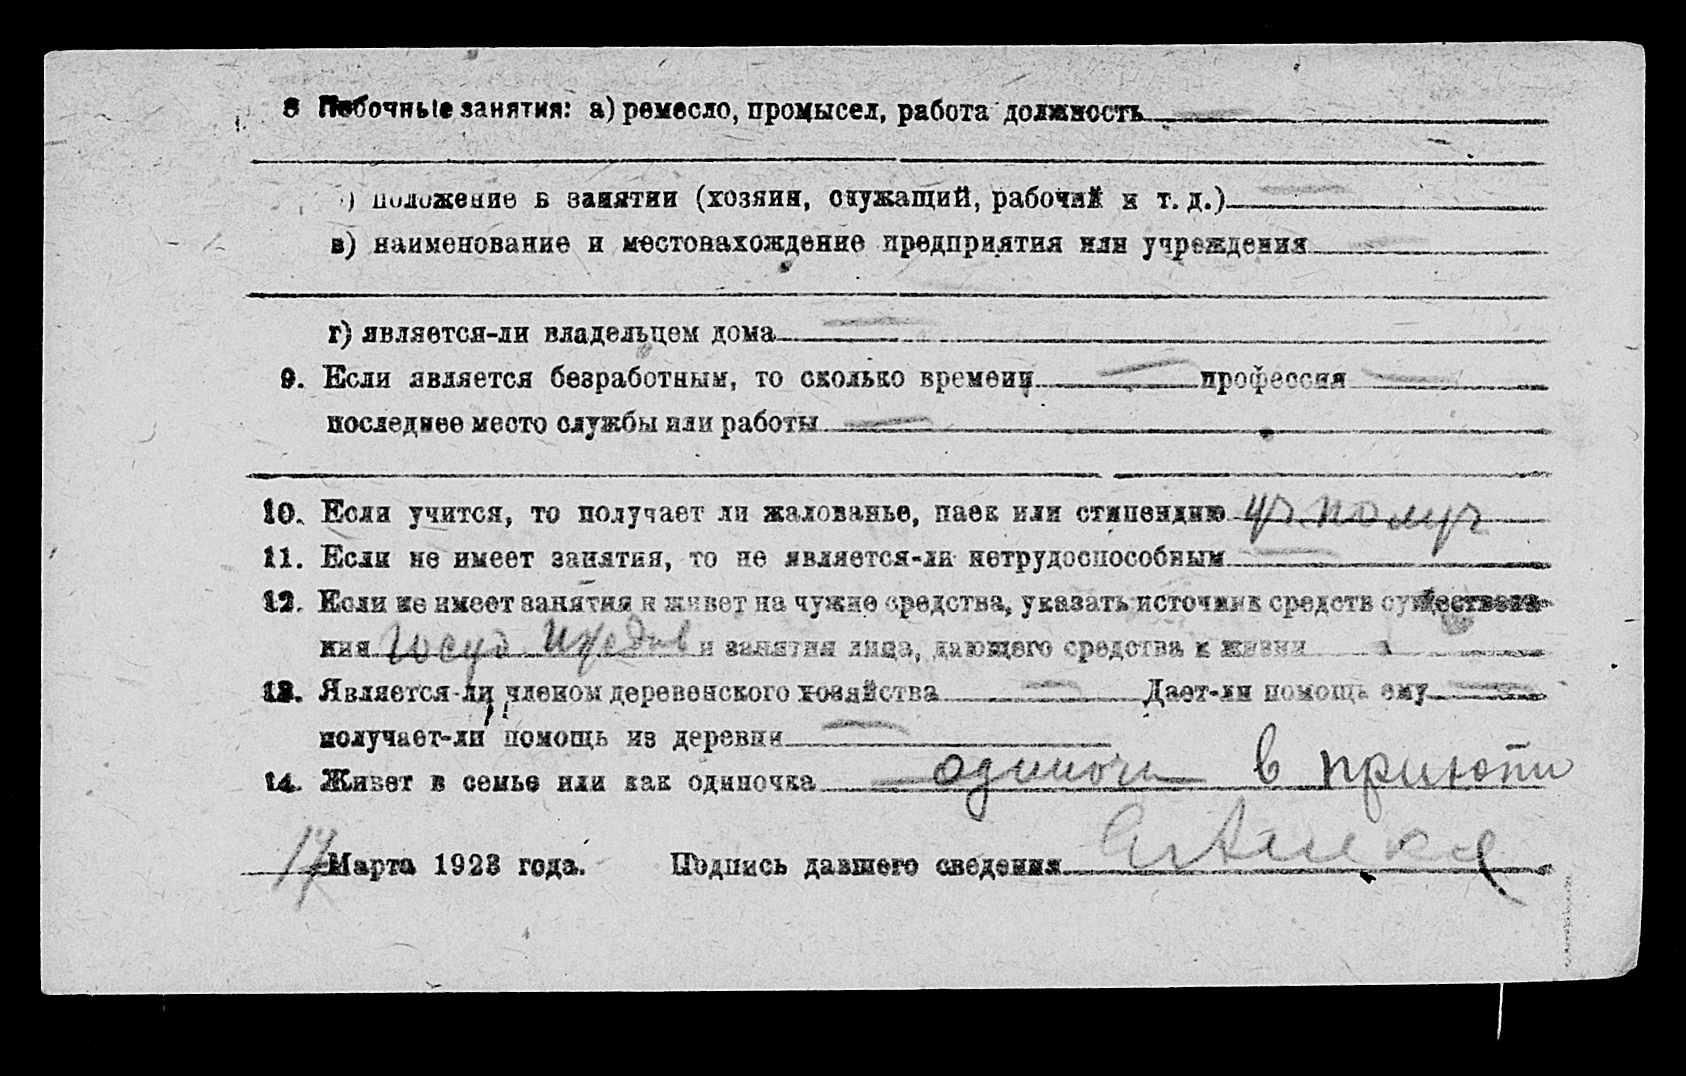 8 Побочные занятия: а) ремесло, промысел, работа должность —
) положение в занятии (хозяин, служащий, рабочий и т. д.) —
в) наименование и местонахождение предприятия или учреждения —
г) является-ли владельцем дома —
9. Если является безработным, то сколько времени — профессия —
последнее место службы или работы —
10. Если учится, то получает ли жалованье, паек или стипендию уч. получ
11. Если не имеет занятия, то не является-ли нетрудоспособным —
12. Если не имеет занятия и живет на чужие средства, указать источник средств существова-
ния Госуд. Иждив и занятия лица, дающего средства к жизни
13. Является-ли членом деревенского хозяйства — Дает-ли помощь ему —
получает-ли помощь из деревни —
14. Живет в семье или как одиночка одиноч в приюти
17 Марта 1923 года. Подпись давшего сведения